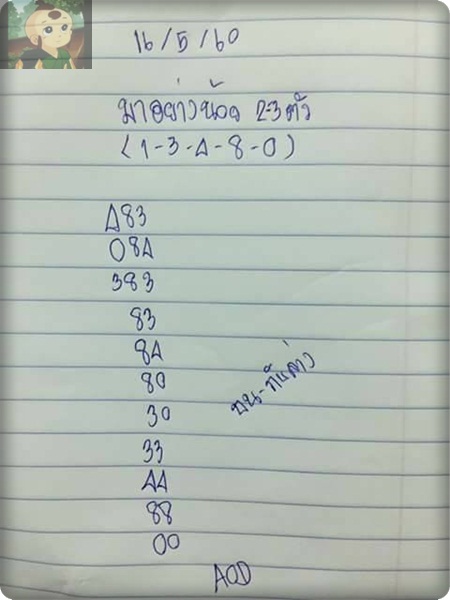 16/5/60
มาอย่างน้อย 2-3 ตัว
(1-3-4-8-0)
483
084
383
83
84
80
30
33
44
88
00
บน-ก้นล่าง
AOD